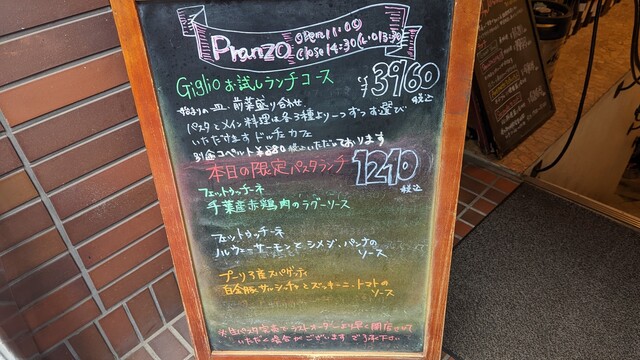 Pranzo Open 11:00 Close 14:30 (L.o 13:30)
Giglio お試しランチコース ¥3960 税込
始まりの一皿、前菜盛り合わせ
パスタとメイン料理は各3種より一つずつお選び
いただけます ドルチェ カフェ
別途コペルト¥880税込いただいております
本日の限定パスタランチ 1210 税込
フェットゥッチーネ
千葉産赤鶏肉のラグーソース
フェットゥッチーネ
ノルウェーサーモンとシメジ、パンナの
ソース
プーリア産スパゲッティ
白金豚サルシッチャとズッキーニ、トマトの
ソース
パスタ完売でラストオーダーより早く閉店
いただく場合がございます ご了承下さい